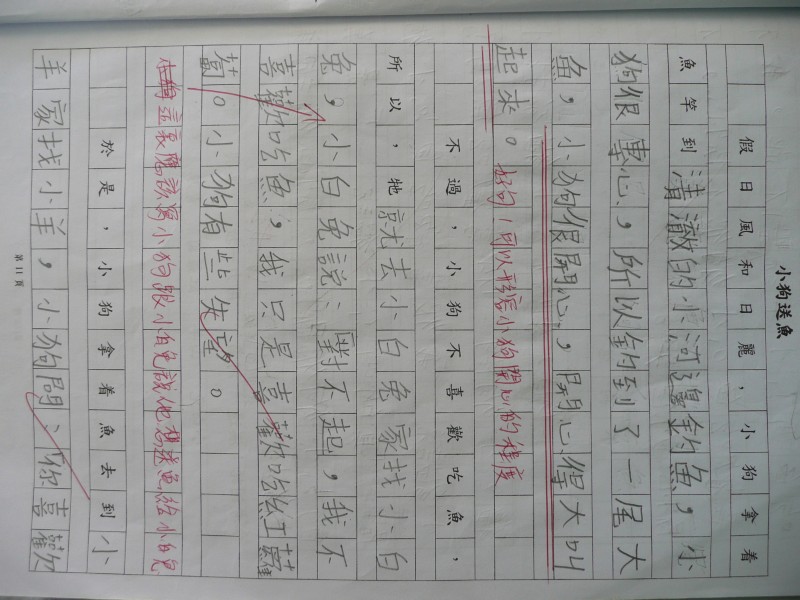 小狗送魚
假日風和日麗,小狗拿着
魚竿到清澈的小河邊釣魚,小
狗很專心,所以釣到了一尾大
魚,小狗很開心,開心得大叫
起來。好句!可以形容小狗開心的程度
不過,小狗不喜歡吃魚,
所以,牠就去小白兔家找小白
兔,小白兔說:對不起,我不
喜歡吃魚,我只是喜歡吃紅蘿
蔔。小狗有些失望。
這裏應該寫小狗跟小白兔說他想送魚給小白兔
於是,小狗拿着魚去到小
羊家找小羊,小狗問:你喜歡
第11頁